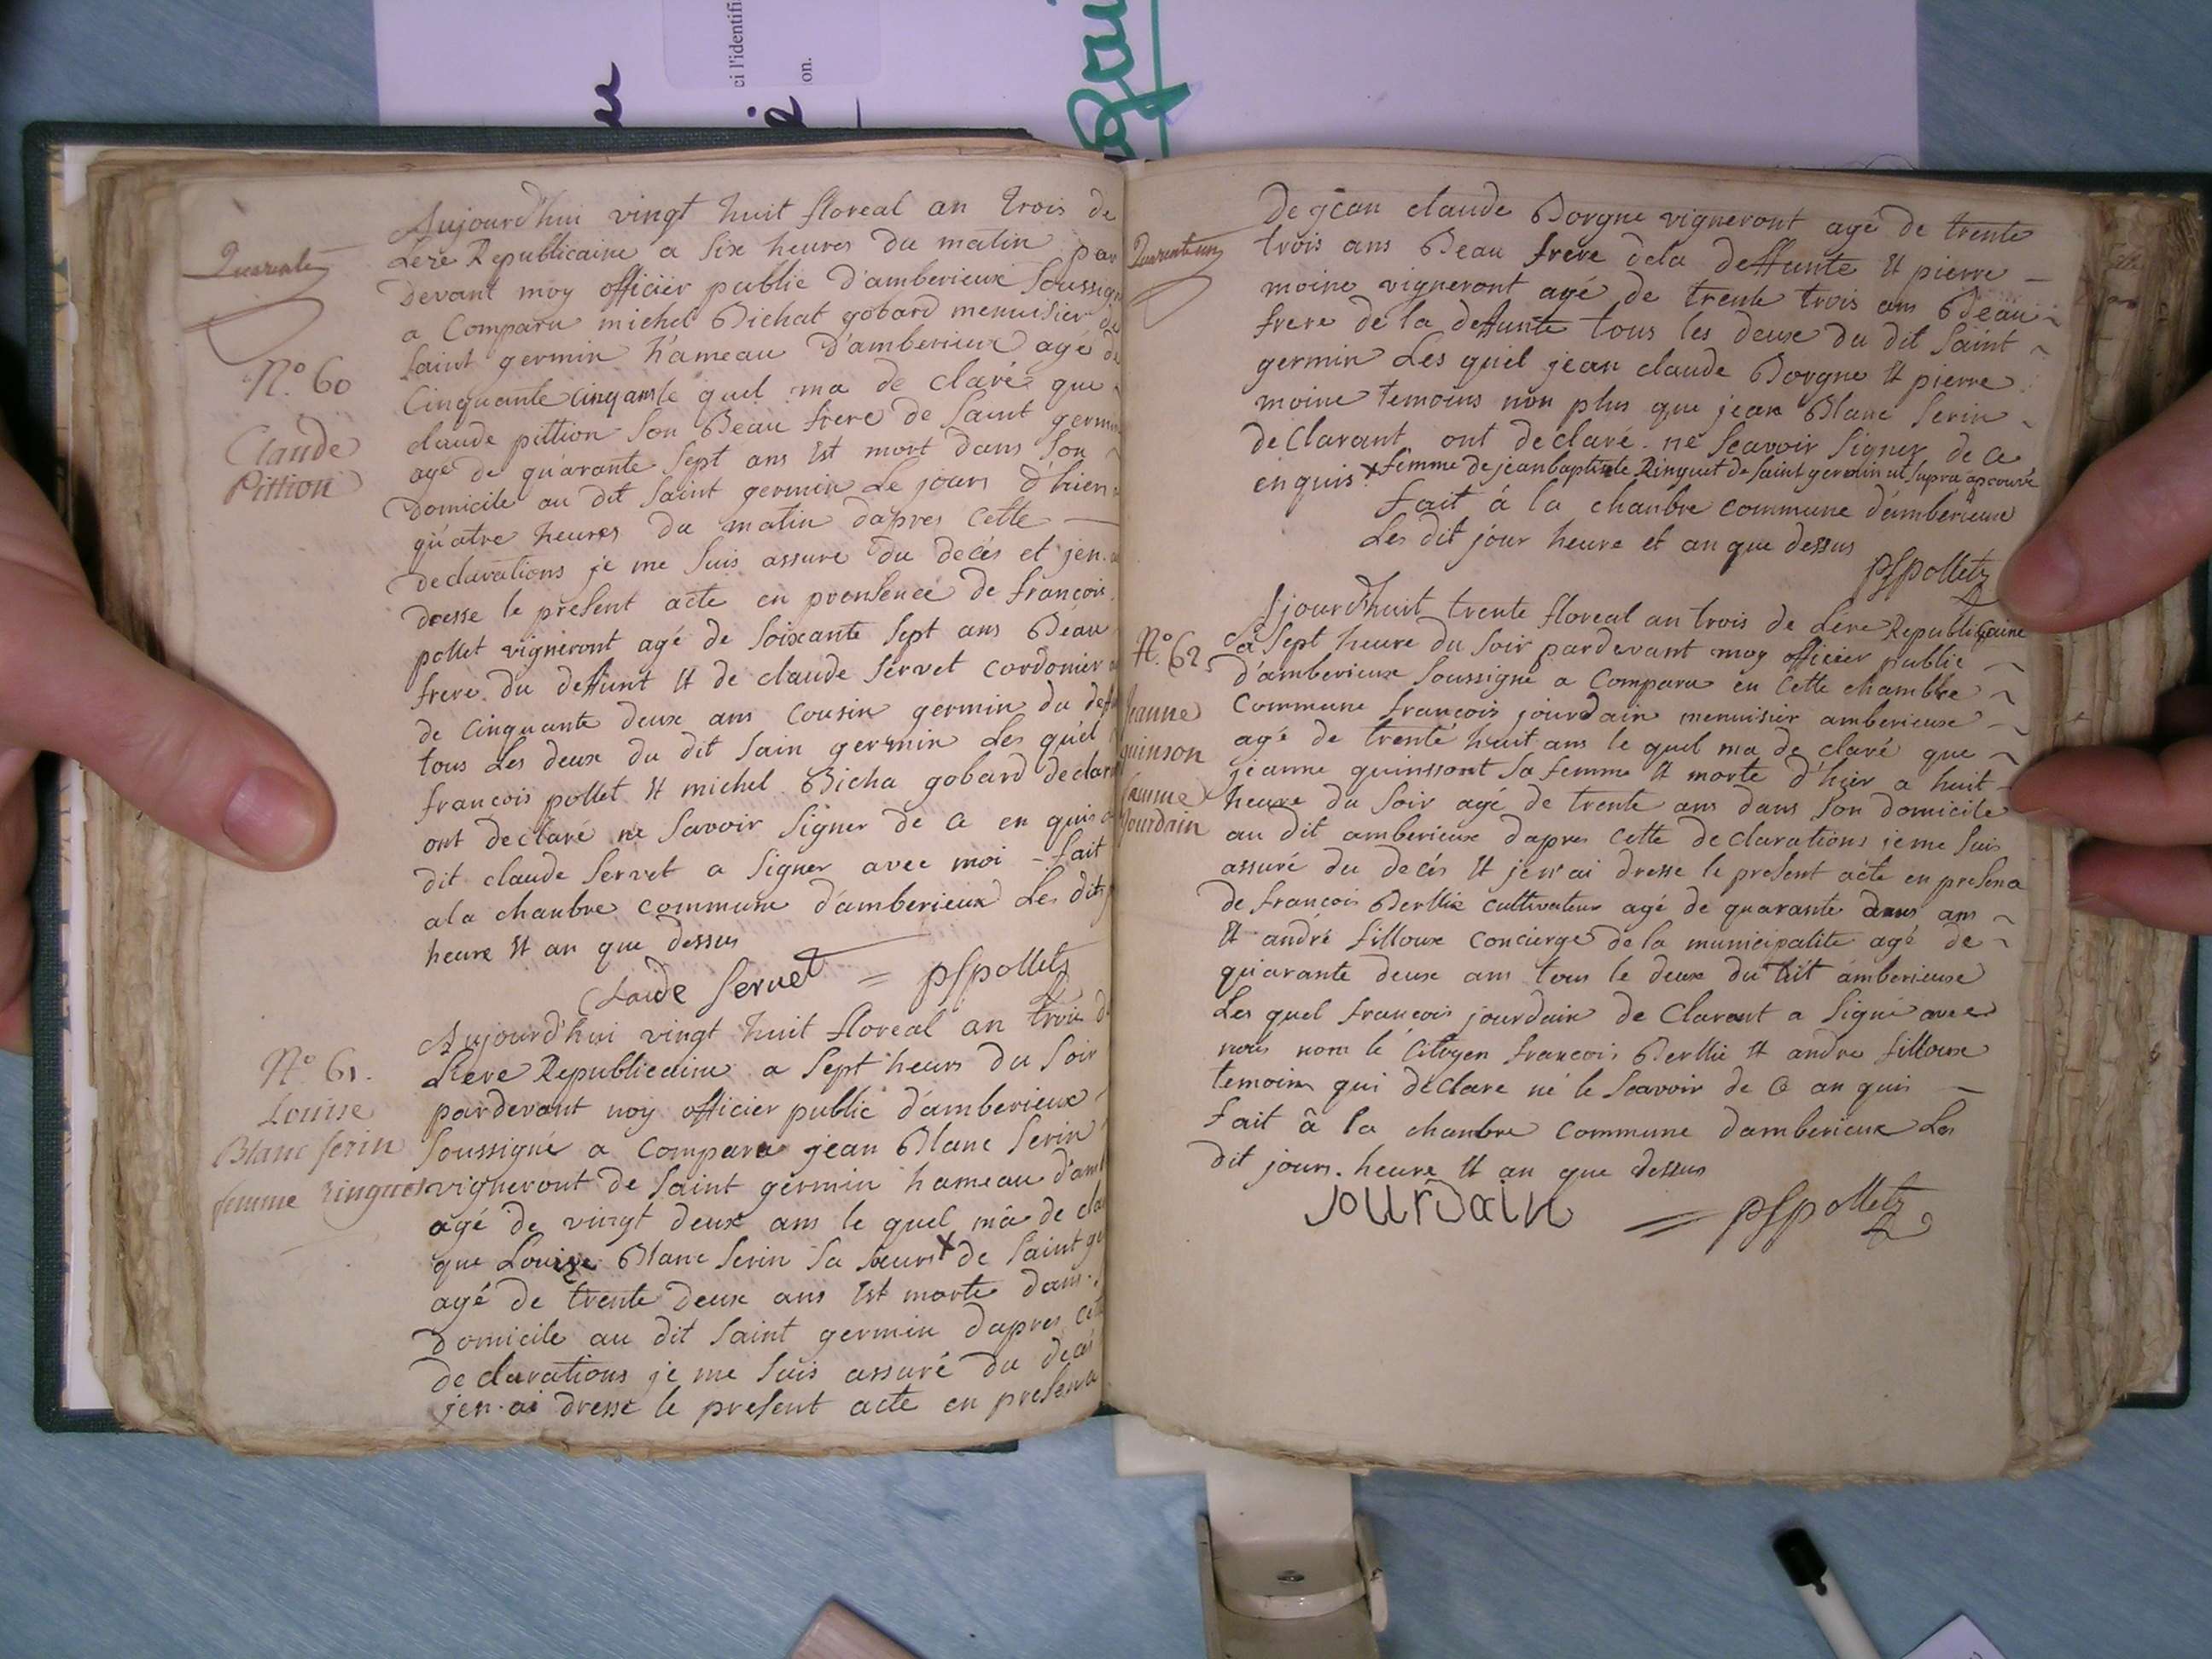 ci l'identifi
on.
Quarente
N.º 60
Claude
Pittion
Aujourd'hui vingt huit floreal an trois de
Lere Republicaine a six heures du matin par
devant moy officier public d'amberieux soussign
a Comparu michel Bichat gobard menuisier de
saint germin h'ameau d'amberieux agé de
Cinquante cinq ans le quel ma de claré que
claude pittion son Beau frere de saint germin
agé de qu'arante sept ans Est mort dans son
domicile au dit saint germin Le jours d'hier
qu'atre heures du matin dapres Cette —
declarations je me suis assure du decés et jen. ai
dresse le present acte en prensencé de francois
pollet vigneront agé de soixante sept ans Beau
frere du deffunt Et de claude servet cordonier a
de Cinquante deux ans Cousin germin du deffu
tous Les deux du dit sain germin Les qu'el
francois pollet Et michel Bicha gobard declara
ont declaré ne savoir signer de Ce en quis
dit claude servet a signer avec moi - fait
a la chanbre commune d'amberieux Les dit j
heure Et an que dessus
Claude Servet = pspollet
N.º 61.
Louise
Blanc serin
femme ringuet
Aujourd'hui vingt huit floreal an trois de
Lere Republicaine a sept heurs du soir
pardevant moy officier public d'amberieux
soussigné a Comparu jean Blanc serin
vigneront de saint germin hameau d'amb
agé de vingt deux ans le quel m'a de cla
que Louise Blanc serin sa sœurs x de saint ge
agé de trente deux ans Est morte dans.
domicile au dit saint germin dapres Cette
declarations je me suis assuré du decés
jen. ai dresse le present acte en presence
Quarente un
De jean claude Borgne vigneront agé de trente
trois ans Beau frere dela deffunte Et pierre —
moine vigneront agé de trente trois ans Beau
frere de la deffunte tous les deux du dit saint
germin Les quel jean claude Borgne Et pierre
moine temoins non plus que jean Blanc serin
declarant ont declaré ne scavoir signer de ce
enquis. x femme de jean baptiste Ringuet de saint germin ut supra approuvé
fait à la chanbre commune d'amberieux
Les dit jour heure et an que dessus
pspollet
N.º 62.
Jeanne
quinson
femme
Jourdain
Ajourd'huit trente floreal an trois de Lere Republiquaine
a sept heure du soir pardevant moy officier public
d'amberieux soussigné a Comparu en Cette chambre
Commune francois jourdain menuisier amberieux
agé de trenté huit ans le quel ma de claré que
jeanne quinssont sa femme Et morte d'hier a huit
heure du soir agé de trente ans dans son domicile
au dit amberieux dapres Cette declarations je me suis
assuré du decés Et jen'ai dresse le present acte en presence
de francois Berllie cultivateur agé de quarante deux ans
Et andré filloux Concierge de la municipalite agé de
qu'arante deux ans tous le deux du dit amberieux
Les quel francois jourdain de Clarant a signé avec
nous nom le Citoyen francois Berllie Et andre filloux
temoins qui déclare né le scavoir de Ce an quis —
fait â la chanbre commune d'amberieux Les
dit jours. heure Et an que dessus
jourdain = pspollet